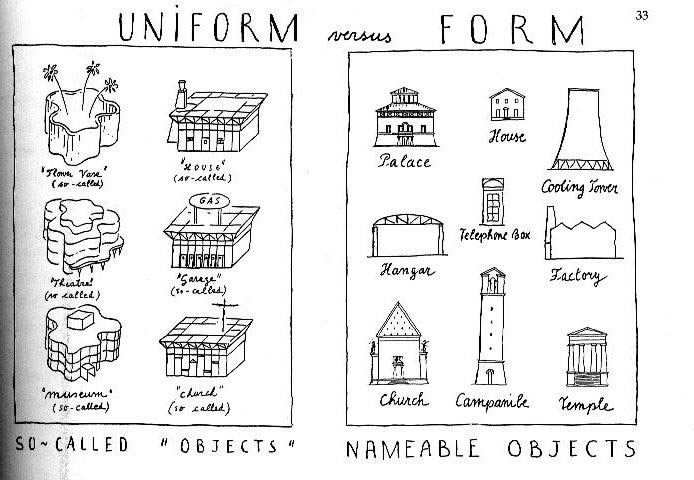 33
UNIFORM versus FORM
"Flower Vase"
(so-called)
"HOUSE"
(so-called)
"Theatre"
(so called)
GAS
"Garage"
(so-called)
"museum"
(so-called)
"church"
(so called)
SO-CALLED "OBJECTS"
Palace
House
Cooling Tower
Telephone Box
Hangar
Factory
Church
Campanile
Temple
NAMEABLE OBJECTS